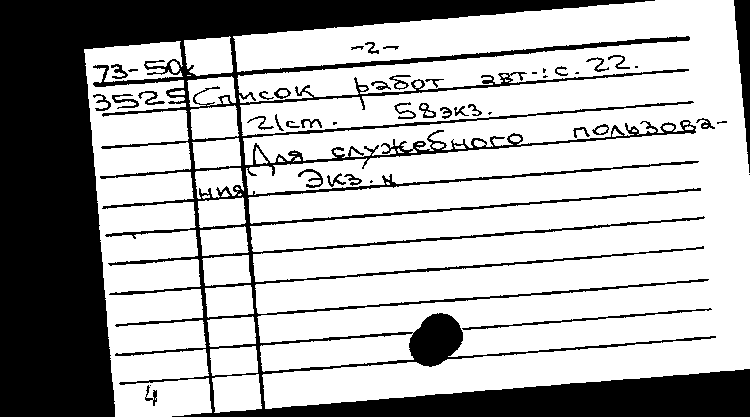 -2-
73-50к
3525 Список работ авт-: с. 22.
21cm. 58экз.
Для служебного пользова-
ния. Экз. н
4